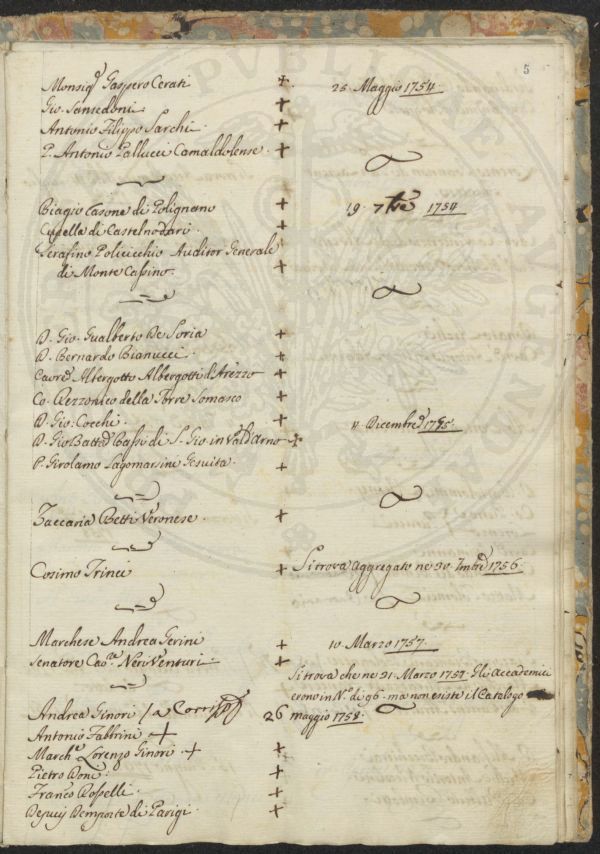 5
Monsig.r Gaspero Cerati + 25 Maggio 1754
Gio. Sansedoni +
Antonio Filippo Sarchi +
P. Antonio Pallucci Camaldolense +
Biagio Casone di Polignano + 19 7bre 1754
Cupella di Castelnodari +
Serafino Policicchio Auditor Generale
di Monte Cassino +
D. Gio. Gualberto De Soria +
D. Bernardo Bianucci +
Cavre Albergotto Albergotti d'Arezzo +
Co. Rezzonico della Torre Somasco +
D. Gio: Cocchi + 4 Dicembre 1755
D. Gio Batta Passi di S. Gio in Vald'Arno +
P. Girolamo Lagomarsini Gesuita +
Zaccaria Betti Veronese +
Cosimo Trinci + Si trova aggregato ne 30 7mbre 1756
Marchese Andrea Gerini + 10 Marzo 1757
Senatore Cav.re Neri Venturi +
Si trova che ne 31 Marzo 1757 Gli Accademici
erono in No. di 96 ma non esiste il Catalogo
Andrea Ginori 26 maggio 1758
Antonio Fabbrini +
March.e Lorenzo Ginori + +
Pietro Boni +
Franco Rosselli +
Depuy Demporte di Parigi +